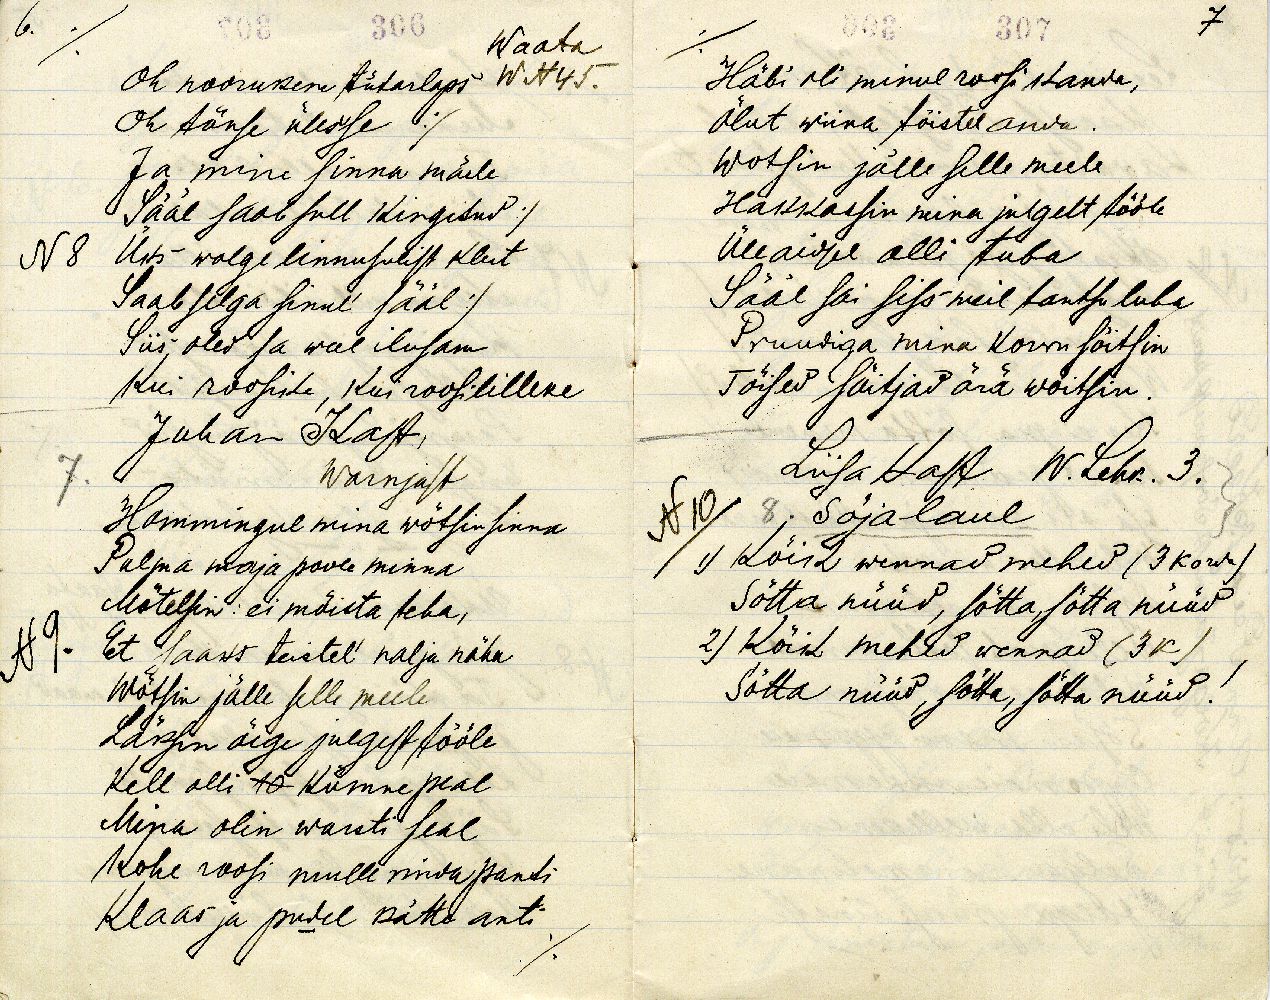 6.
306
Waata
Oh noorukene tütarlaps
W N 45.
Oh tõuse ülesse :/
Ja mine sinna mäele
Sääl saab sull kingitud :/
N 8 Üks walge linnusulist kleit
Saab selga sinul' sääl :/
Siis, oled sa weel ilusam
Kui roosike, kui roosililleke
Juhan Kast,
Warnjast
7.
Hommingul mina wõtsin sinna
Pulma maja poole minna
Mõtelsin: ei mõista teha,
N 9. Et saaks teistel' nalja näha
Wõtsin jälle selle meele
Läksin õige julgest tööle
Kell olli 10 Kümne peal
Mina olin warsti seal
Kohe roosi mulle rinda panti
Klaas ja pudel kätte anti
./.
7
307
./.
Häbi oli minul roosi kanda,
Õlut wiina tõistel anda.
Wotsin jälle selle meele
Hakkassin mina julgelt tööle
Üle aidsel olli tuba
Sääl sai siis meil tantsu luba
Pruudiga mina korra sõitsin
Tõised sõitjad ärä wõitsin.
Liisa Kast W. Lehk. 3.
N 10 8. Sõja laul
1) Kõik wennad mehed (3 korda)
Sõtta nüüd, sõtta, sõtta nüüd
2) Kõik mehed wennad (3 k)
Sõtta nüüd, sõtta, sõtta nüüd!